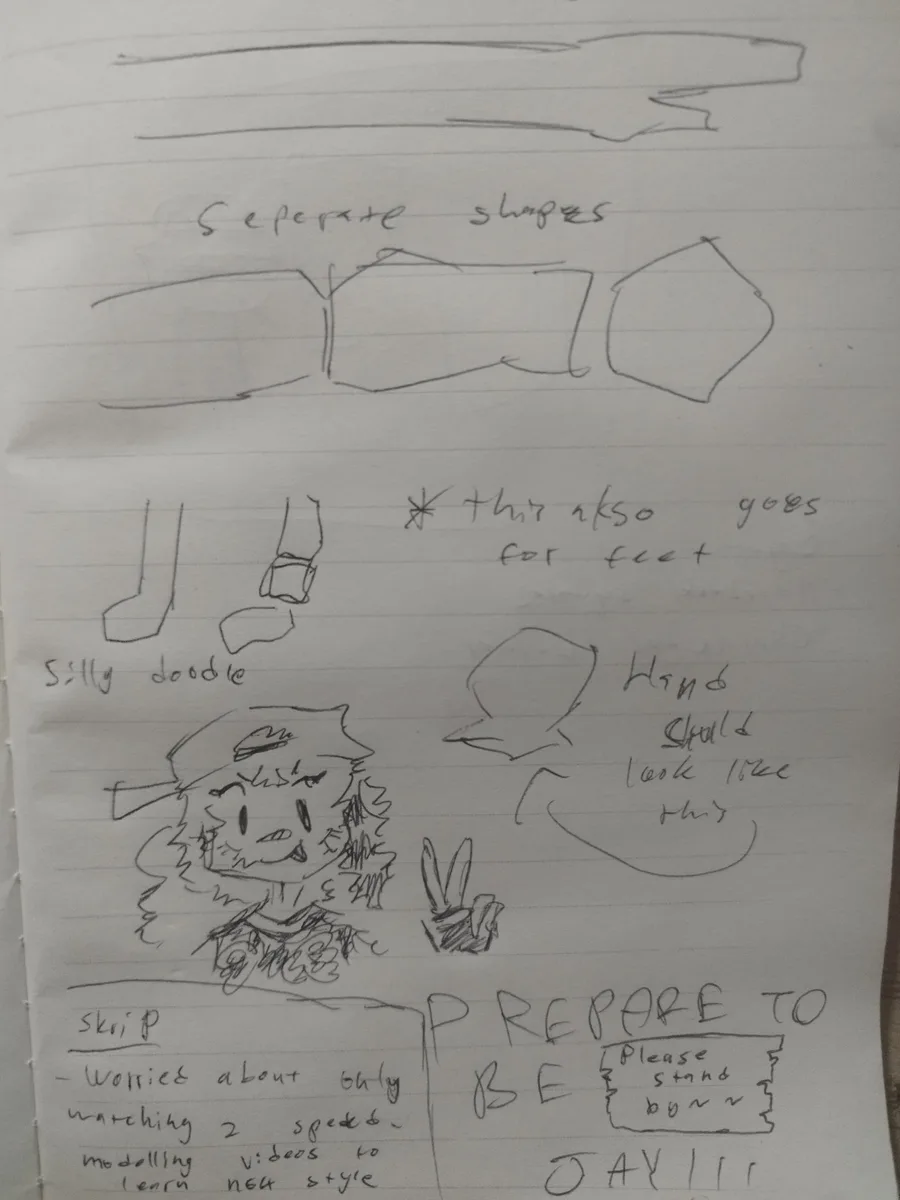 Seperate shapes
* this akso goes
for feet
Silly doodle
Hand
should
look like
this
skrip
- Worried about only
watching 2 speed-
modelling videos to
learn new style
PREPARE TO
BE
Please
stand
by~~
JAY!!!